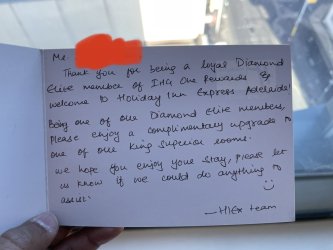 Mr
Thank you for being a loyal Diamond
Elite member of IHG One Rewards &
welcome to Holiday Inn Express Adelaide!
Being one of our Diamond Elite members,
Please enjoy a complimentary upgrade to
one of our King Superior rooms.
we hope you enjoy your stay, please let
us know if we could do anything to
assist.
— HIEx team